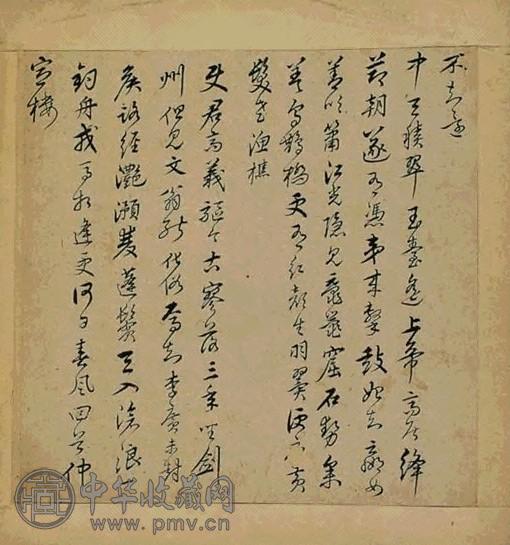 不知還
中天積翠玉臺遙上帝高居絳
節朝遂有馮夷來擊鼓始知嬴女
善吹簫江光隱見黿鼉窟石勢參
差烏鵲橋更有紅顏生羽翼便應黃
髮老漁樵
使君高義驅今古寥落三年坐劍
州但見文翁能化俗焉知李廣未封
侯路經灩澦雙蓬鬢天入滄浪一
釣舟戎馬相逢更何日春風回首仲
宣樓
中华收藏网
www.pmv.cn